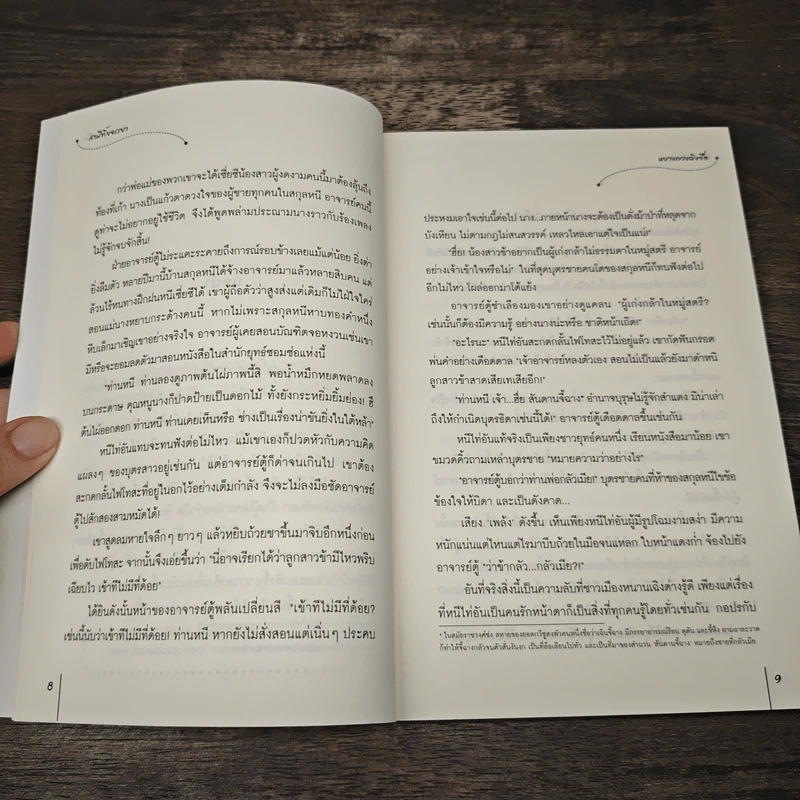 สามีที่ขอกบฏา
กว่าพ่อแม่ของพวกเขาจะได้เซี่ยซีน้องสาวผู้งดงามคนนี้มาต้องลุ้นถึง
ท้องที่เก้า นางเป็นแก้วตาดวงใจของผู้ชายทุกคนในสกุลหนี อาจารย์คนนี้
ดูท่าจะไม่อยากอยู่ใช้ชีวิต จึงได้พูดพล่ามประณามนางราวกับร้องเพลง
ไม่รู้จักจบจักสิ้น!
ฝ่ายอาจารย์ตู้ไม่ระแคะระคายถึงการณ์รอบข้างเลยแม้แต่น้อย ยิ่งด่า
ยิ่งลืมตัว หลายปีมานี้บ้านสกุลหนีได้จ้างอาจารย์มาแล้วหลายสิบคน แต่
ล้วนไร้หนทางฝึกฝนหนีเซี่ยซีได้ เขาผู้ถือตัวว่าสูงส่งแต่เดิมก็ไม่ใฝ่ใจใคร่
สอนแม่นางหยาบกระด้างคนนี้ หากไม่เพราะสกุลหนีหาบทองคำหนึ่ง
หีบเล็กมาเชิญเขาอย่างจริงใจ อาจารย์ผู้เคยสอนบัณฑิตจอหงวนเช่นเขา
มีหรือจะยอมลดตัวมาสอนหนังสือในสำนักยุทธ์ซอมซ่อแห่งนี้
"ท่านหนี ท่านลองดูภาพต้นไผ่ภาพนี้สิ พอน้ำหมึกหยดพลาดลง
บนกระดาษ คุณหนูนางก็ปาดป้ายเป็นดอกไม้ ทั้งยังกระหยิ่มยิ้มย่อง! ฮึ
ต้นไผ่ออกดอก ท่านหนี ท่านเคยเห็นหรือ ช่างเป็นเรื่องน่าขันยิ่งในใต้หล้า"
หนีไท่อันแทบจะทนฟังต่อไม่ไหว แม้เขาเองก็ปวดหัวกับความคิด
แผลงๆ ของบุตรสาวอยู่เช่นกัน แต่อาจารย์ตู้ก็ด่าจนเกินไป เขาต้อง
สะกดกลั้นไฟโทสะที่อยู่ในอกไว้อย่างเต็มกำลัง จึงจะไม่ลงมือซัดอาจารย์
ตู้ไปสักสองสามหมัดได้!
เขาสูดลมหายใจลึกๆ ยาวๆ แล้วหยิบถ้วยชาขึ้นมาจิบอีกหนึ่งก่อน
เพื่อดับไฟโทสะ จากนั้นจึงเอ่ยขึ้นว่า "นี่อาจเรียกได้ว่าลูกสาวข้ามีไหวพริบ
เฉียบไว เข้าทีไม่มีที่ด้อย"
ได้ยินดังนั้นหน้าของอาจารย์ตู้พลันเปลี่ยนสี "เข้าทีไม่มีที่ด้อย?
เช่นนี้นับว่าเข้าทีไม่มีที่ด้อย! ท่านหนี หากยังไม่สั่งสอนแต่เนิ่นๆ ประคบ
8
หยางกวงฉิงซื่อ
ประหงมเอาใจเช่นนี้ต่อไป นาง...ภายหน้านางจะต้องเป็นดั่งม้าป่าที่หลุดจาก
บังเหียน ไม่ตามกฎไม่สนสวรรค์ เหลวไหลเอาแต่ใจเป็นแน่!"
"ฮึย! น้องสาวข้าอยากเป็นผู้เก่งกล้าไม่ธรรมดาในหมู่สตรี อาจารย์
อย่างเจ้าเข้าใจหรือไม่" ในที่สุดบุตรชายคนโตของสกุลหนีก็ทนฟังต่อไป
อีกไม่ไหว โผล่ออกมาโต้แย้ง
อาจารย์ตู้ชำเลืองมองเขาอย่างดูแคลน "ผู้เก่งกล้าในหมู่สตรี?
เช่นนั้นก็ต้องมีความรู้ อย่างนางน่ะหรือ ชาติหน้าเถิด!"
"อะไรนะ" หนีไท่อันสะกดกลั้นไฟโทสะไว้ไม่อยู่แล้ว เขากัดฟันกรอด
พ่นคำอย่างเดือดดาล "เจ้าอาจารย์หลงตัวเอง สอนไม่เป็นแล้วยังมาตำหนิ
ลูกสาวข้าสาดเสียเทเสียอีก!"
"ท่านหนี เจ้า...ฮึย สันดานจี้ฉาง* อำนาจบุรุษไม่รู้จักสำแดง มิน่าเล่า
ถึงให้กำเนิดบุตรธิดาเช่นนี้ได้!" อาจารย์ตู้เดือดดาลขึ้นเช่นกัน
หนีไท่อันแท้จริงเป็นเพียงชาวยุทธ์คนหนึ่ง เรียนหนังสือมาน้อย เขา
ขมวดคิ้วถามเหล่าบุตรชาย "หมายความว่าอย่างไร"
"อาจารย์ตู้บอกว่าท่านพ่อกลัวเมีย!" บุตรชายคนที่ห้าของสกุลหนีไขข้อ
ข้องใจให้บิดา และเป็นดังคาด...
เสียง 'เพล้ง' ดังขึ้น เห็นเพียงหนีไท่อันผู้มีรูปโฉมงามสง่า มีความ
หนักแน่นแต่ไหนแต่ไรมาบีบถ้วยในมือจนแหลก ใบหน้าแดงก่ำ จ้องไปยัง
อาจารย์ตู้ "ว่าข้ากลัว...กลัวเมีย?!"
อันที่จริงสิ่งนี้เป็นความลับที่ชาวเมืองหนานเฉิงต่างรู้ดี เพียงแต่เรื่อง
ที่หนีไท่อันเป็นคนรักหน้าตาก็เป็นสิ่งที่ทุกคนรู้โดยทั่วเช่นกัน กอปรกับ
* ในสมัยราชวงศ์ซ่ง สหายของยอดกวีซูตงพัวคนหนึ่งชื่อว่าเฉินจี้ฉาง มีภรรยาอารมณ์ร้อน ดุดัน และขี้หึง ยามอาละวาด
ก็ทำให้จี้ฉางกลัวจนตัวสั่นงันงก เป็นที่ล้อเลียนไปทั่ว และเป็นที่มาของสำนวน 'สันดานจี้ฉาง' หมายถึงชายที่กลัวเมีย
9